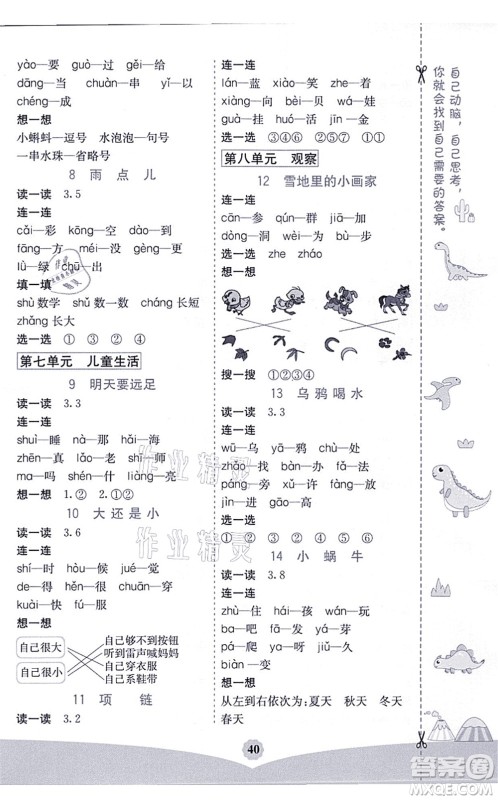 yào—要　guò—过　gěi—给
dāng—当　chuàn—串　yǐ—以
chéng—成
想一想
小蝌蚪—逗号　水泡泡—句号
一串水珠—省略号
8　雨　点　儿
读一读　3.5
连一连
cǎi—彩　kōng—空　dào—到
fāng—方　méi—没　wèn—问
lǜ—绿　chū—出
填一填
shù 数学　shǔ 数一数　cháng 长短
zhǎng 长大
选一选　①　③　②　④
第七单元　儿童生活
9　明天要远足
读一读　3.3
连一连
shuì—睡　nà—那　hǎi—海
zhēn—真　lǎo—老　shī—师
ma—吗　shén—什　liàng—亮
想一想　1.②　2.①②
10　大　还　是　小
读一读　3.6
连一连
shí—时　hòu—候　jué—觉
de—得　hěn—很　chuān—穿
kuài—快　fú—服
想一想
自己很大
自己很小
自己够不到按钮
听到雷声喊妈妈
自己穿衣服
自己系鞋带
11　项　　链
读一读　3.2
连一连
lán—蓝　xiào—笑　zhe—着
xiàng—向　bèi—贝　wá—娃
guà—挂　huó—活　jīn—金
选一选　①③④　②⑤⑥
第八单元　观察
12　雪地里的小画家
连一连
cān—参　qún—群　zhú—竹
dòng—洞　wèi—为　bù—步
选一选　zhe　zháo
想一想
搜一搜　①②③④
13　乌 鸦 喝 水
读一读　3.3
连一连
wū—乌　yā—鸦　chù—处
zhǎo—找　bàn—办　xǔ—许
páng—旁　fàng—放　fǎ—法
jìn—进　gāo—高
选一选　①　②　③　④　⑤
14　小　蜗　牛
读一读　3.8
连一连
zhù—住　hái—孩　wán—玩
ba—吧　fā—发　yá—芽
pá—爬　ya—呀　jiǔ—久
biàn—变
想一想
从左到右依次为：夏天　秋天　冬天
春天
自己动脑，自己思考，
你就会找到自己需要的答案。
40
作业精灵
作业精灵
答案圈
MXQE.COM